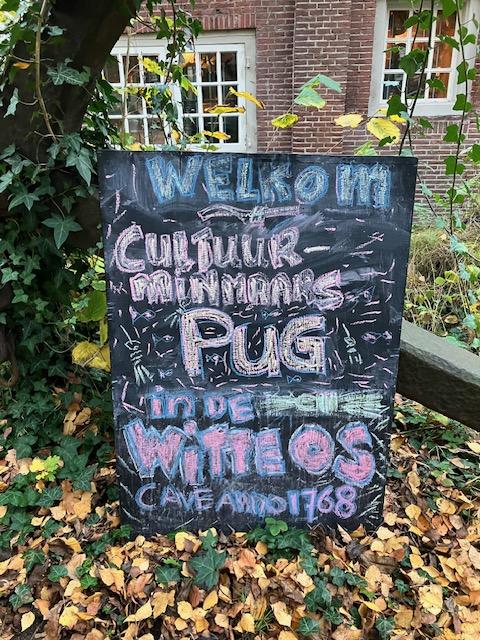 WELKOM
CULTUUR-
MINNAARS
PUG
in DE
WiTTE OS
CAVE ANNO 1768